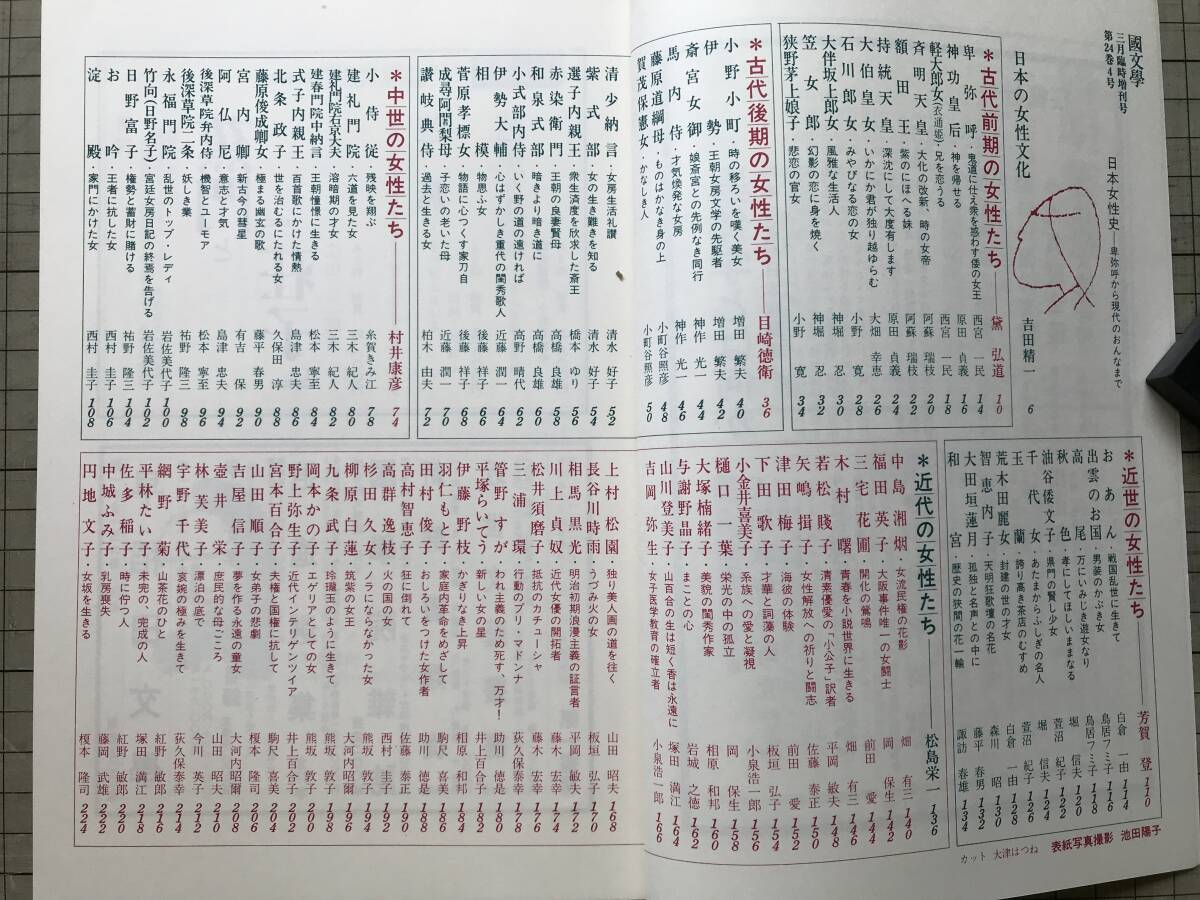 國文學
三月臨時増刊号
第24巻4号
日本女性史・卑弥呼から現代のおんなまで
日本の女性文化 吉田精一 6
＊古代前期の女性たち 黛 弘道 10
卑弥呼・鬼道に仕え衆を惑わす倭の女王 西宮 一民 14
神功皇后・神を帰せる 原田 貞義 16
軽太郎女(衣通姫)兄を恋うる 西宮 一民 18
斉明天皇・大化の改新、時の女帝 阿蘇 瑞枝 20
額田王・紫のにほへる妹 阿蘇 瑞枝 22
持統天皇・深沈にして大度有します 原田 貞義 24
大伯皇女・いかにか君が独り越ゆらむ 大畑 幸恵 26
石川郎女・みやびなる恋の女 小野 寛 28
大伴坂上郎女・風雅な生活人 神堀 忍 30
笠女郎・幻影の恋に身を焼く 神堀 忍 32
狭野茅上娘子・悲恋の官女 小野 寛 34
＊古代後期の女性たち 目崎徳衛 36
小野小町・時の移ろいを嘆く美女 増田 繁夫 40
伊勢・王朝女房文学の先駆者 増田 繁夫 42
斎宮女御・娘斎宮との先例なき同行 神作 光一 44
馬内侍・才気煥発な女房 神作 光一 46
藤原道綱母・ものはかなき身の上 小町谷照彦 48
賀茂保憲女・かなしき人 小町谷照彦 50
清少納言・女房生活礼讃 清水 好子 52
紫式部・女の生き難きを知る 清水 好子 54
選子内親王・衆生済度を欣求した斎王 橋本 ゆり 56
赤染衛門・王朝の良妻賢母 高橋 良雄 58
和泉式部・暗きより暗き道に 高橋 良雄 60
小式部内侍・いく野の道の遠ければ 高野 晴代 62
伊勢大輔・心はずかしき重代の閨秀歌人 近藤 潤一 64
相模・物思ふ女 後藤 祥子 66
菅原孝標女・物語に心つくす家刀自 後藤 祥子 68
成尋阿闍梨母・子恋いの老いた母 近藤 潤一 70
讃岐典侍・過去と生きる女 柏木 由夫 72
＊中世の女性たち 村井康彦 74
小侍従・残映を翔ぶ 糸賀きみ江 78
建礼門院・六道を見た女 三木 紀人 80
建礼門院右京大夫・溶暗期の才女 三木 紀人 82
建春門院中納言・王朝憧憬に生きる 松本 寧至 84
式子内親王・百首歌にかけた情熱 島津 忠夫 86
北条政子・世を治むるにたれる女 久保田 淳 88
藤原俊成卿女・極まる幽玄の歌 藤平 春男 90
宮内卿・新古今の彗星 有吉 保 92
阿仏尼・意志と才気 島津 忠夫 94
後深草院弁内侍・機智とユーモア 松本 寧至 96
後深草院二条・妖しき業 祐野 隆三 98
永福門院・乱世のトップ・レディ 岩佐美代子 100
竹向(日野名子)・宮廷女房日記の終焉を告げる 岩佐美代子 102
日野富子・権勢と蓄財に賭ける 祐野 隆三 104
お吟・王者に抗した女 西村 圭子 106
淀殿・家門にかけた女 西村 圭子 108
＊近世の女性たち 芳賀 登 110
おあん・戦国乱世に生きて 白倉 一由 114
出雲のお国・男装のかぶき女 鳥居フミ子 116
高尾・万にみじめき遊女なり 鳥居フミ子 118
秋色・孝にしてほしいままなる 堀 信夫 120
油谷倭文子・県門の賢し少女 萱沼 紀子 122
千代女・あたまからふしぎの名人 堀 信夫 124
玉蘭・誇り高き茶店のむすめ 萱沼 紀子 126
荒木田麗女・封建の世の才女 白倉 一由 128
智恵内子・天明狂歌壇の名花 森川 昭 130
大田垣蓮月・孤独と名声との中に 藤平 春男 132
和宮・歴史の狭間の花一輪 諏訪 春雄 134
＊近代の女性たち 松島栄一 136
中島湘烟・女流民権の花影 畑 有三 140
福田英子・大阪事件唯一の女闘士 岡 保生 142
三宅花圃・開化の鶯鳴 前田 愛 144
木村曙・青春を小説世界に生きる 畑 有三 146
若松賤子・清素優愛の「小公子」訳者 平岡 敏夫 148
矢嶋揖子・女性解放への祈りと闘志 佐藤 泰正 150
津田梅子・海彼の体験 前田 愛 152
下田歌子・才華と詞藻の人 板垣 弘子 154
小金井喜美子・系族への愛と凝視 小泉浩一郎 156
樋口一葉・栄光の中の孤立 岡 保生 158
大塚楠緒子・美貌の閨秀作家 相原 和邦 160
与謝野晶子・まことの心 岩城 之徳 162
山川登美子・山百合の生は短く香は永遠に 塚田 満江 164
吉岡弥生・女子医学教育の確立者 小泉浩一郎 166
上村松園・独り美人画の道を往く 山田 昭夫 168
長谷川時雨・うづみ火の女 板垣 弘子 170
相馬黒光・明治初期浪漫主義の証言者 平岡 敏夫 172
川上貞奴・近代女優の開拓者 藤木 宏幸 174
松井須磨子・抵抗のカチューシャ 藤木 宏幸 176
三浦環・行動のプリ・マドンナ 荻久保泰幸 178
管野すが・われ主義のため死す、万才! 助川 徳是 180
平塚らいてう・新しい女の星 井上百合子 182
伊藤野枝・かぎりなき上昇 相原 和邦 184
羽仁もと子・家庭内革命をめざして 駒尺 喜美 186
田村俊子・おしろいをつけた女作者 助川 徳是 188
高村智恵子・狂に倒れて 佐藤 泰正 190
高群逸枝・火の国の女 西村 圭子 192
杉田久女・ノラにならなかった女 熊坂 敦子 194
柳原白蓮・筑紫の女王 大河内昭爾 196
九条武子・玲瓏玉のように生きて 熊坂 敦子 198
岡本かの子・エゲリアとしての女 熊坂 敦子 200
野上弥生子・近代インテリゲンツイア 井上百合子 202
宮本百合子・夫権と国権に抗して 駒尺 喜美 204
山田順子・女弟子の悲劇 榎本 隆司 206
吉屋信子・夢を作る永遠の童女 大河内昭爾 208
壺井栄・庶民的な母ごころ 山田 昭夫 210
林芙美子・漂泊の底で 今川 英子 212
宇野千代・哀婉の極みを生きて 荻久保泰幸 214
網野菊・山茶花のひと 紅野 敏郎 216
平林たい子・未完の、完成の人 塚田 満江 218
佐多稲子・時に佇つ人 紅野 敏郎 220
中城ふみ子・乳房喪失 藤岡 武雄 222
円地文子・女坂を生きる 榎本 隆司 224
カット 大津はつね 表紙写真撮影 池田陽子